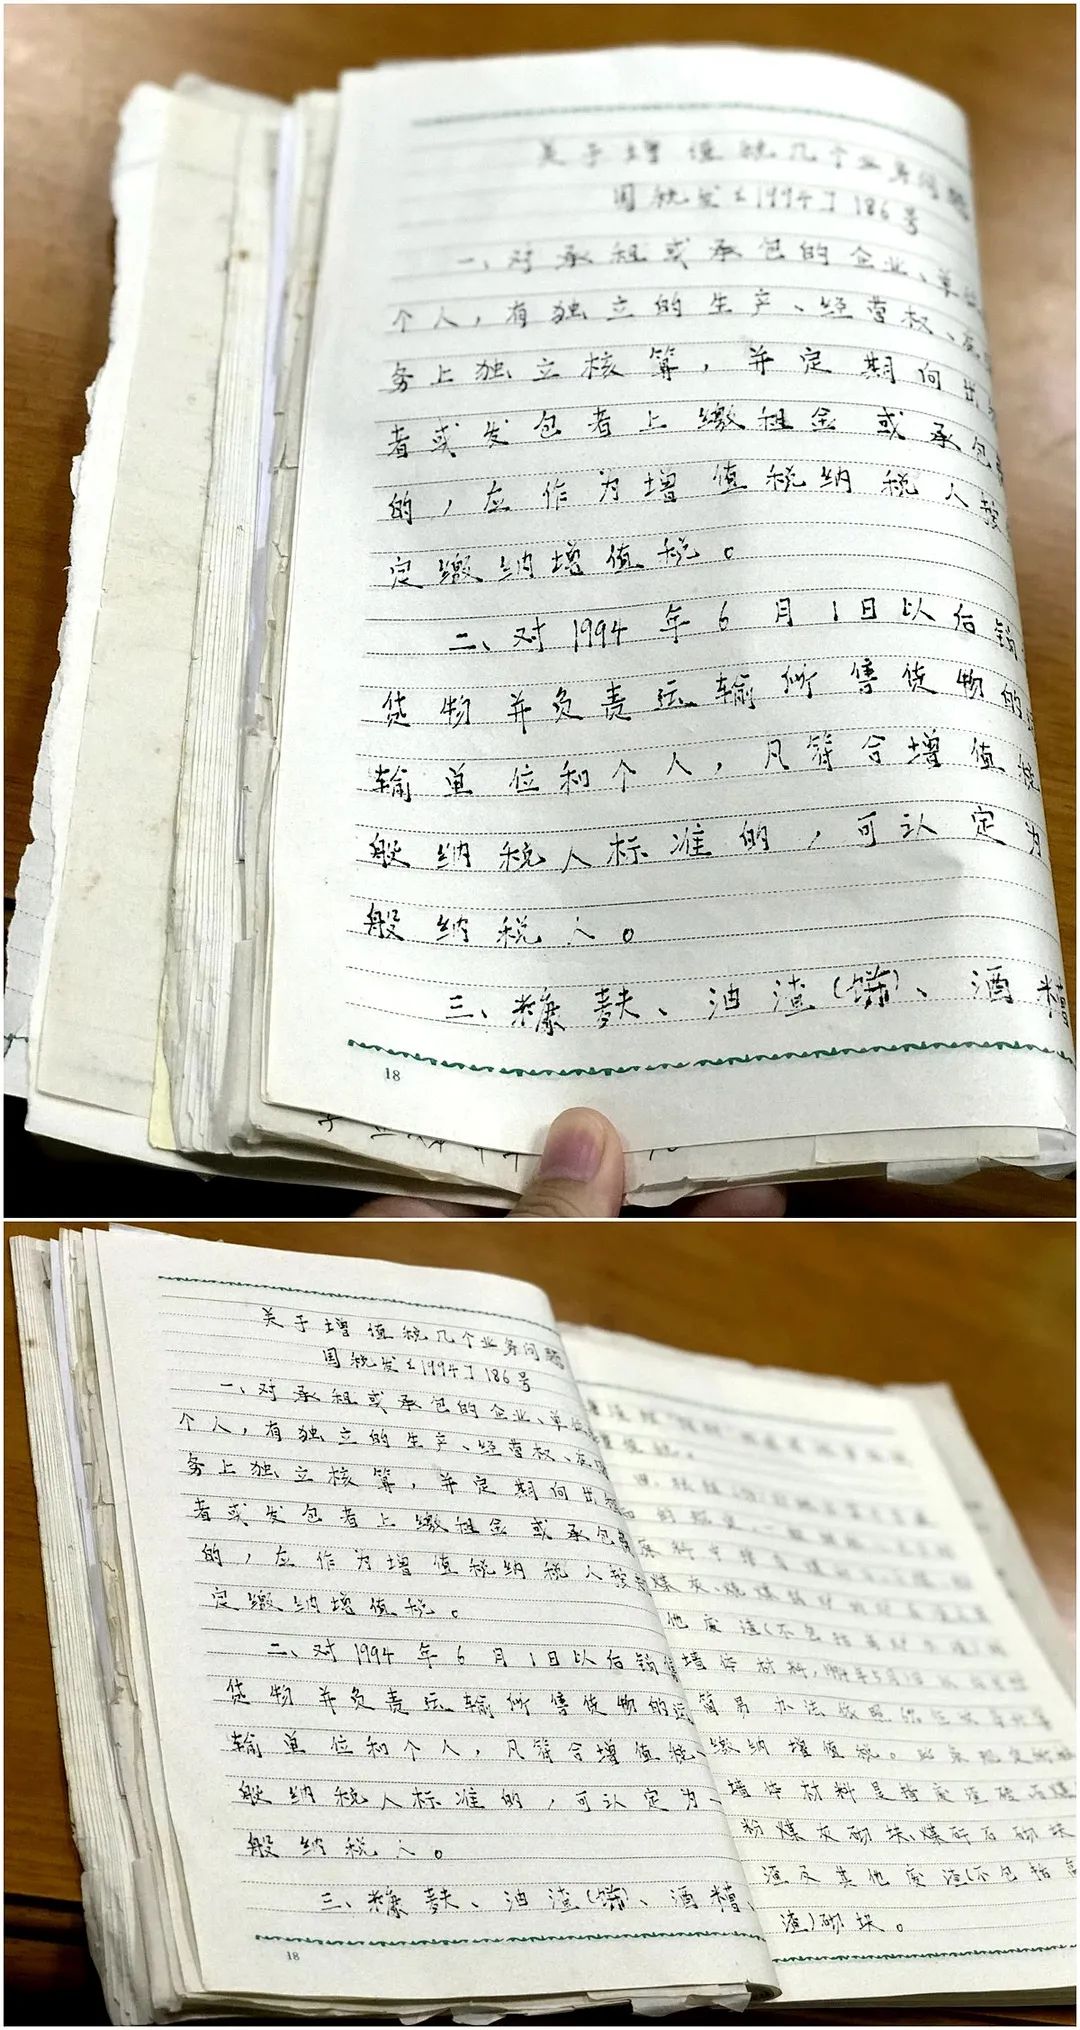 关于增值税几个业务问题
国税发[1994]186号
一、对承租或承包的企业、单位
个人，有独立的生产、经营权、在
务上独立核算，并定期向出
者或发包者上缴租金或承包
的，应作为增值税纳税人按
定缴纳增值税。
二、对1994年6月1日以后销
货物并负责运输所售货物的
输单位和个人，凡符合增值税
般纳税人标准的，可认定为
般纳税人。
三、糠麸、油渣(饼)、酒糟
18
关于增值税几个业务问题
国税发[1994]186号
一、对承租或承包的企业、单位
个人，有独立的生产、经营权、在
务上独立核算，并定期向出租
者或发包者上缴租金或承包
的，应作为增值税纳税人按
定缴纳增值税。
二、对1994年6月1日以后销
货物并负责运输所售货物的运
输单位和个人，凡符合增值税一
般纳税人标准的，可认定为一
般纳税人。
三、糠麸、油渣(饼)、酒糟、
18
煤灰、烧煤
他废渣(不包括高炉水渣)
墙体材料，1994年5月1日
简易办法依照
缴纳增值税。
墙体材料是指废渣砖、石煤
粉煤灰砌块、煤矸石砌块
渣及其他废渣(不包括高
渣)砌块。